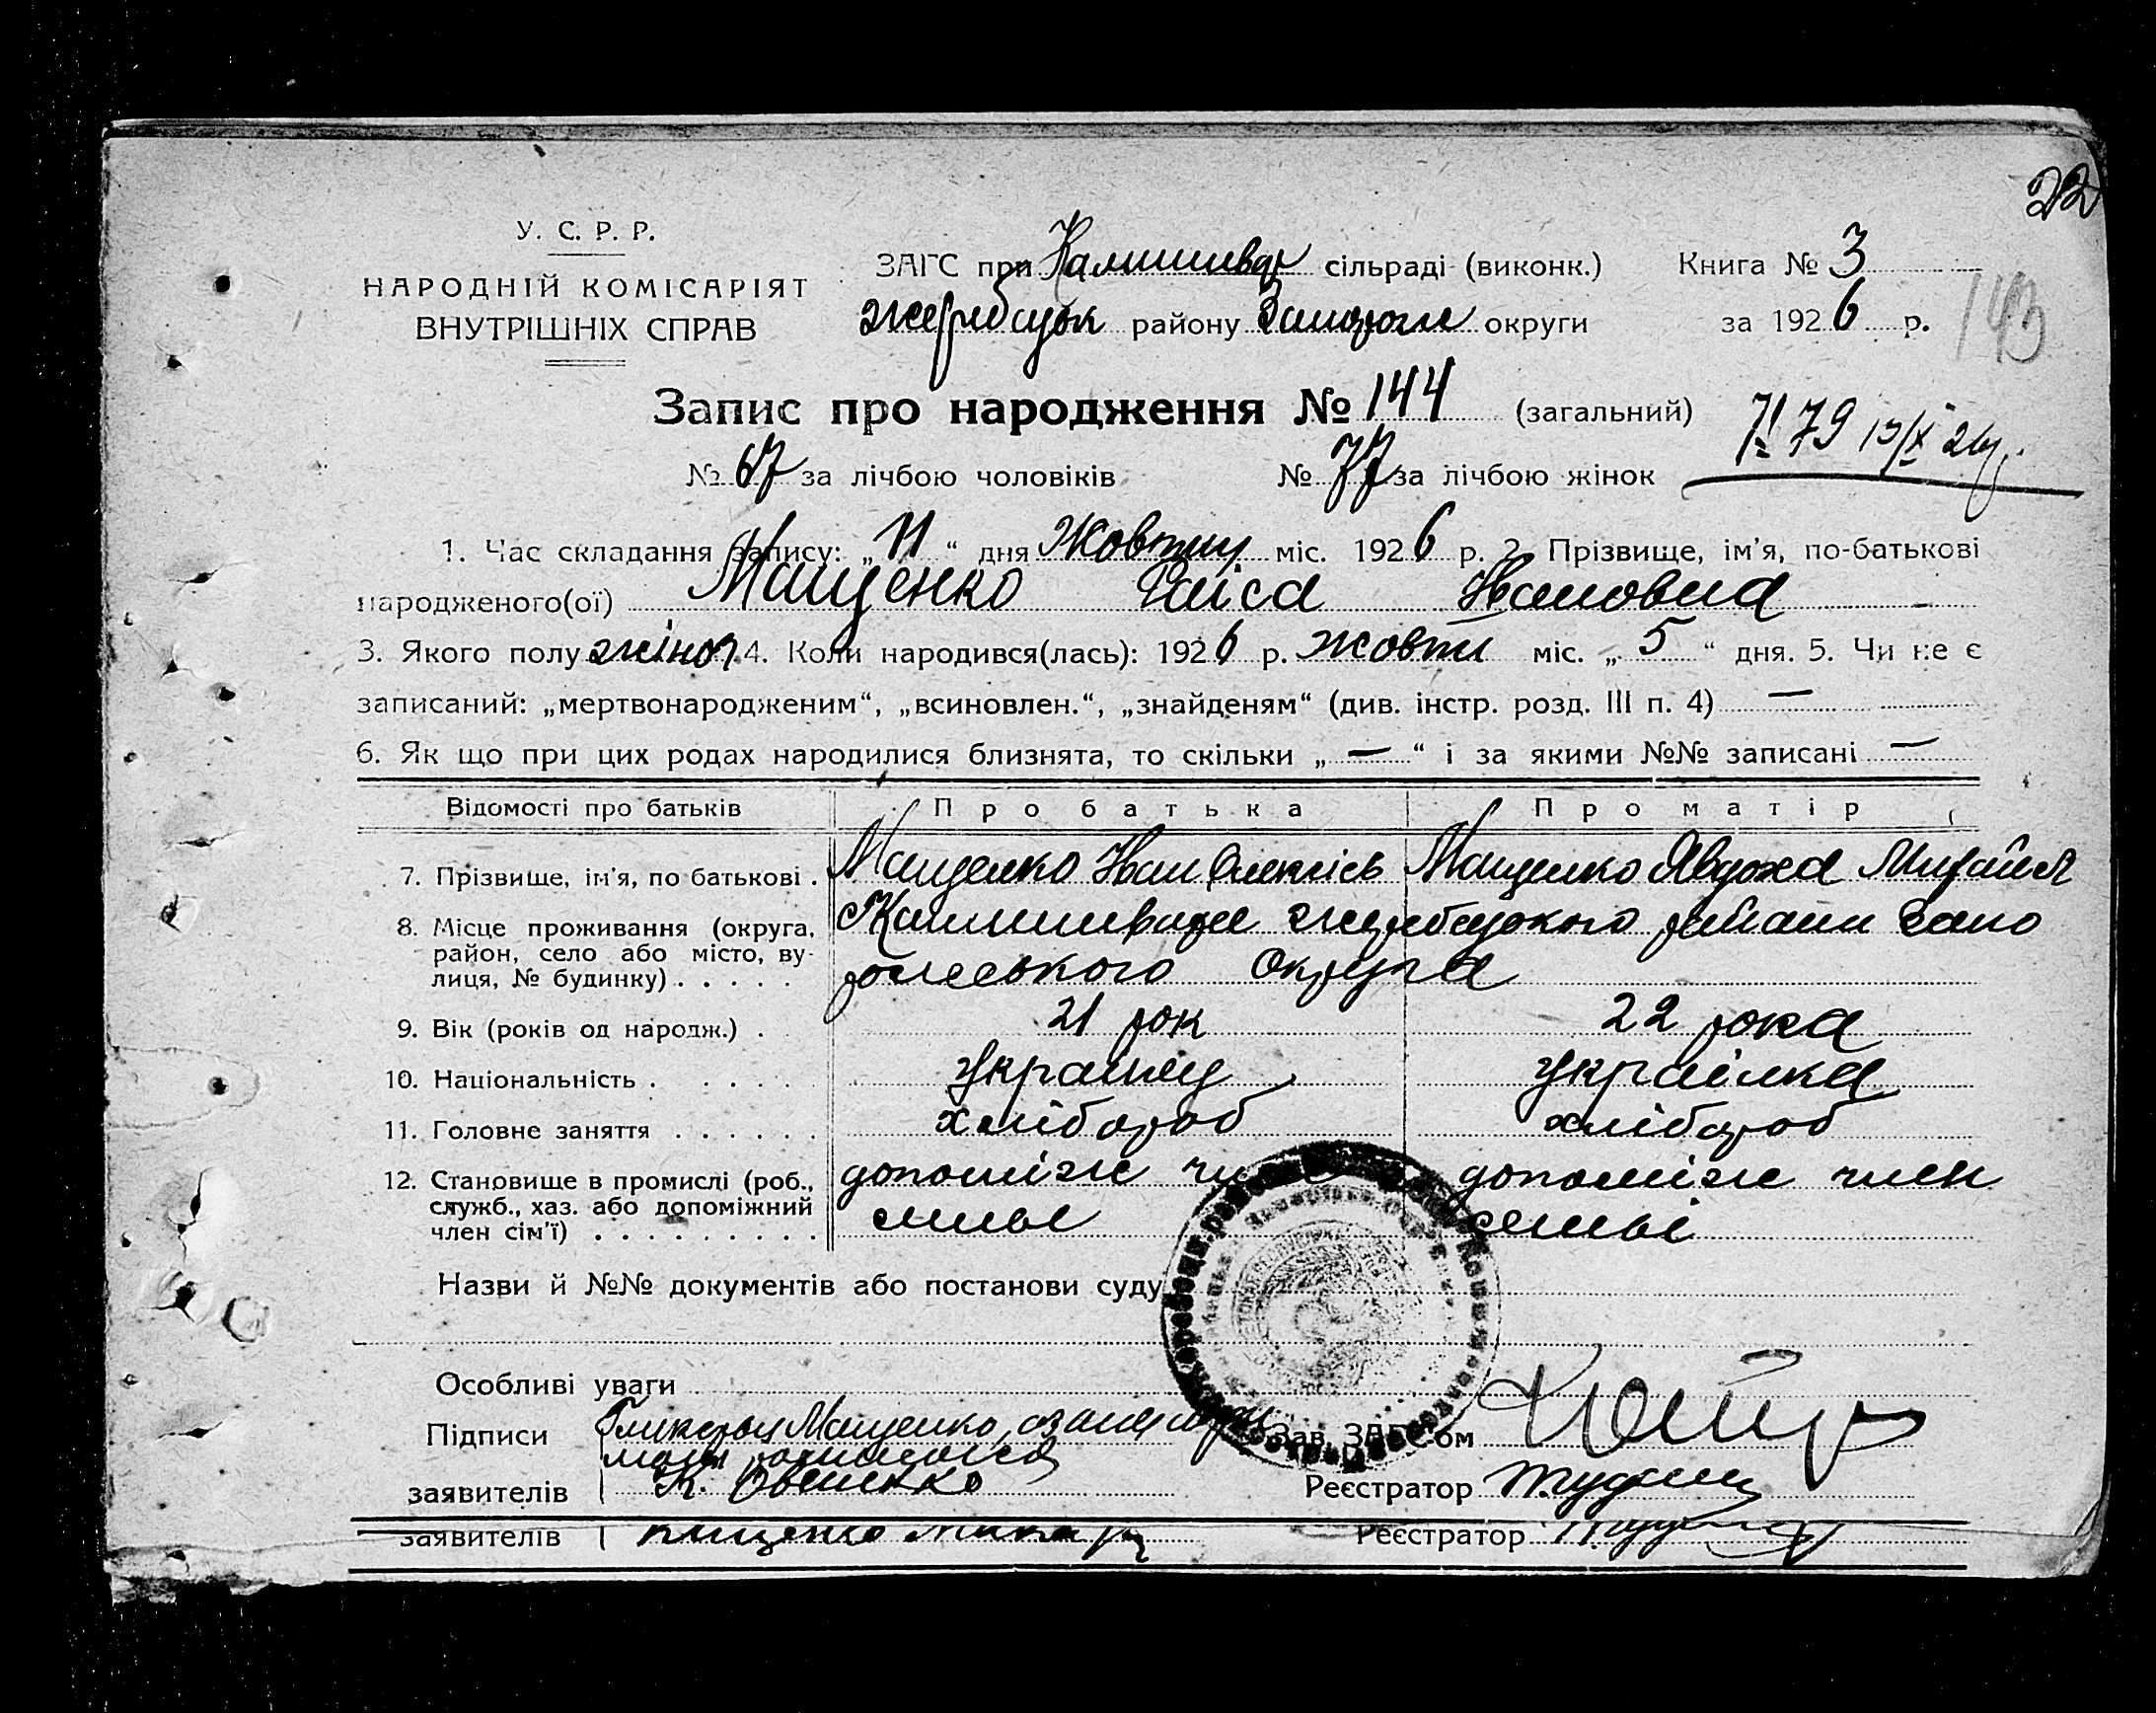 22
У. С. Р. Р.
НАРОДНІЙ КОМІСАРІЯТ
ВНУТРІШНІХ СПРАВ
ЗАГС при сільраді (виконк.)
району округи
Книга № 3
за 1926 р.
143
Запис про народження № 144 (загальний)
№ 67 за лічбою чоловіків № 77 за лічбою жінок
79
1. Час складання запису: „11“ дня Жовтня міс. 1926 р. 2. Прізвище, ім'я, по-батькові
народженого(ої) Мащенко Раіса Ивановна
3. Якого полу жіноч 4. Коли народився(лась): 1926 р. жовтн міс. „5“ дня. 5. Чи не є
записаний: „мертвонародженим“, „всиновлен.“, „знайденям“ (див. інстр. розд. III п. 4) —
6. Як що при цих родах народилися близнята, то скільки „—“ і за якими №№ записані —
Відомості про батьків Про батька Про матір
7. Прізвище, ім'я, по батькові . Мащенко Иван Олексієв Мащенко Явдоха Михайл
8. Місце проживання (округа, район, село або місто, вулиця, № будинку) . . . . . Жеребецького Запо
рожського Округа
9. Вік (років од народж.) . 21 рок 22 рока
10. Національність . . . . . . Украінец Украінка
11. Головне заняття . . . . . . хлібороб хлібороб
12. Становище в промислі (роб., служб., хаз. або допоміжний член сім'ї) . . . . . . . . . допоміжн допоміжн член
семьі семьі
Назви й №№ документів або постанови суду
Особливі уваги
Підписи Мащенко, Зав. ЗАГС'ом
заявителів К. Овсиенко Реєстратор
заявителів Реєстратор